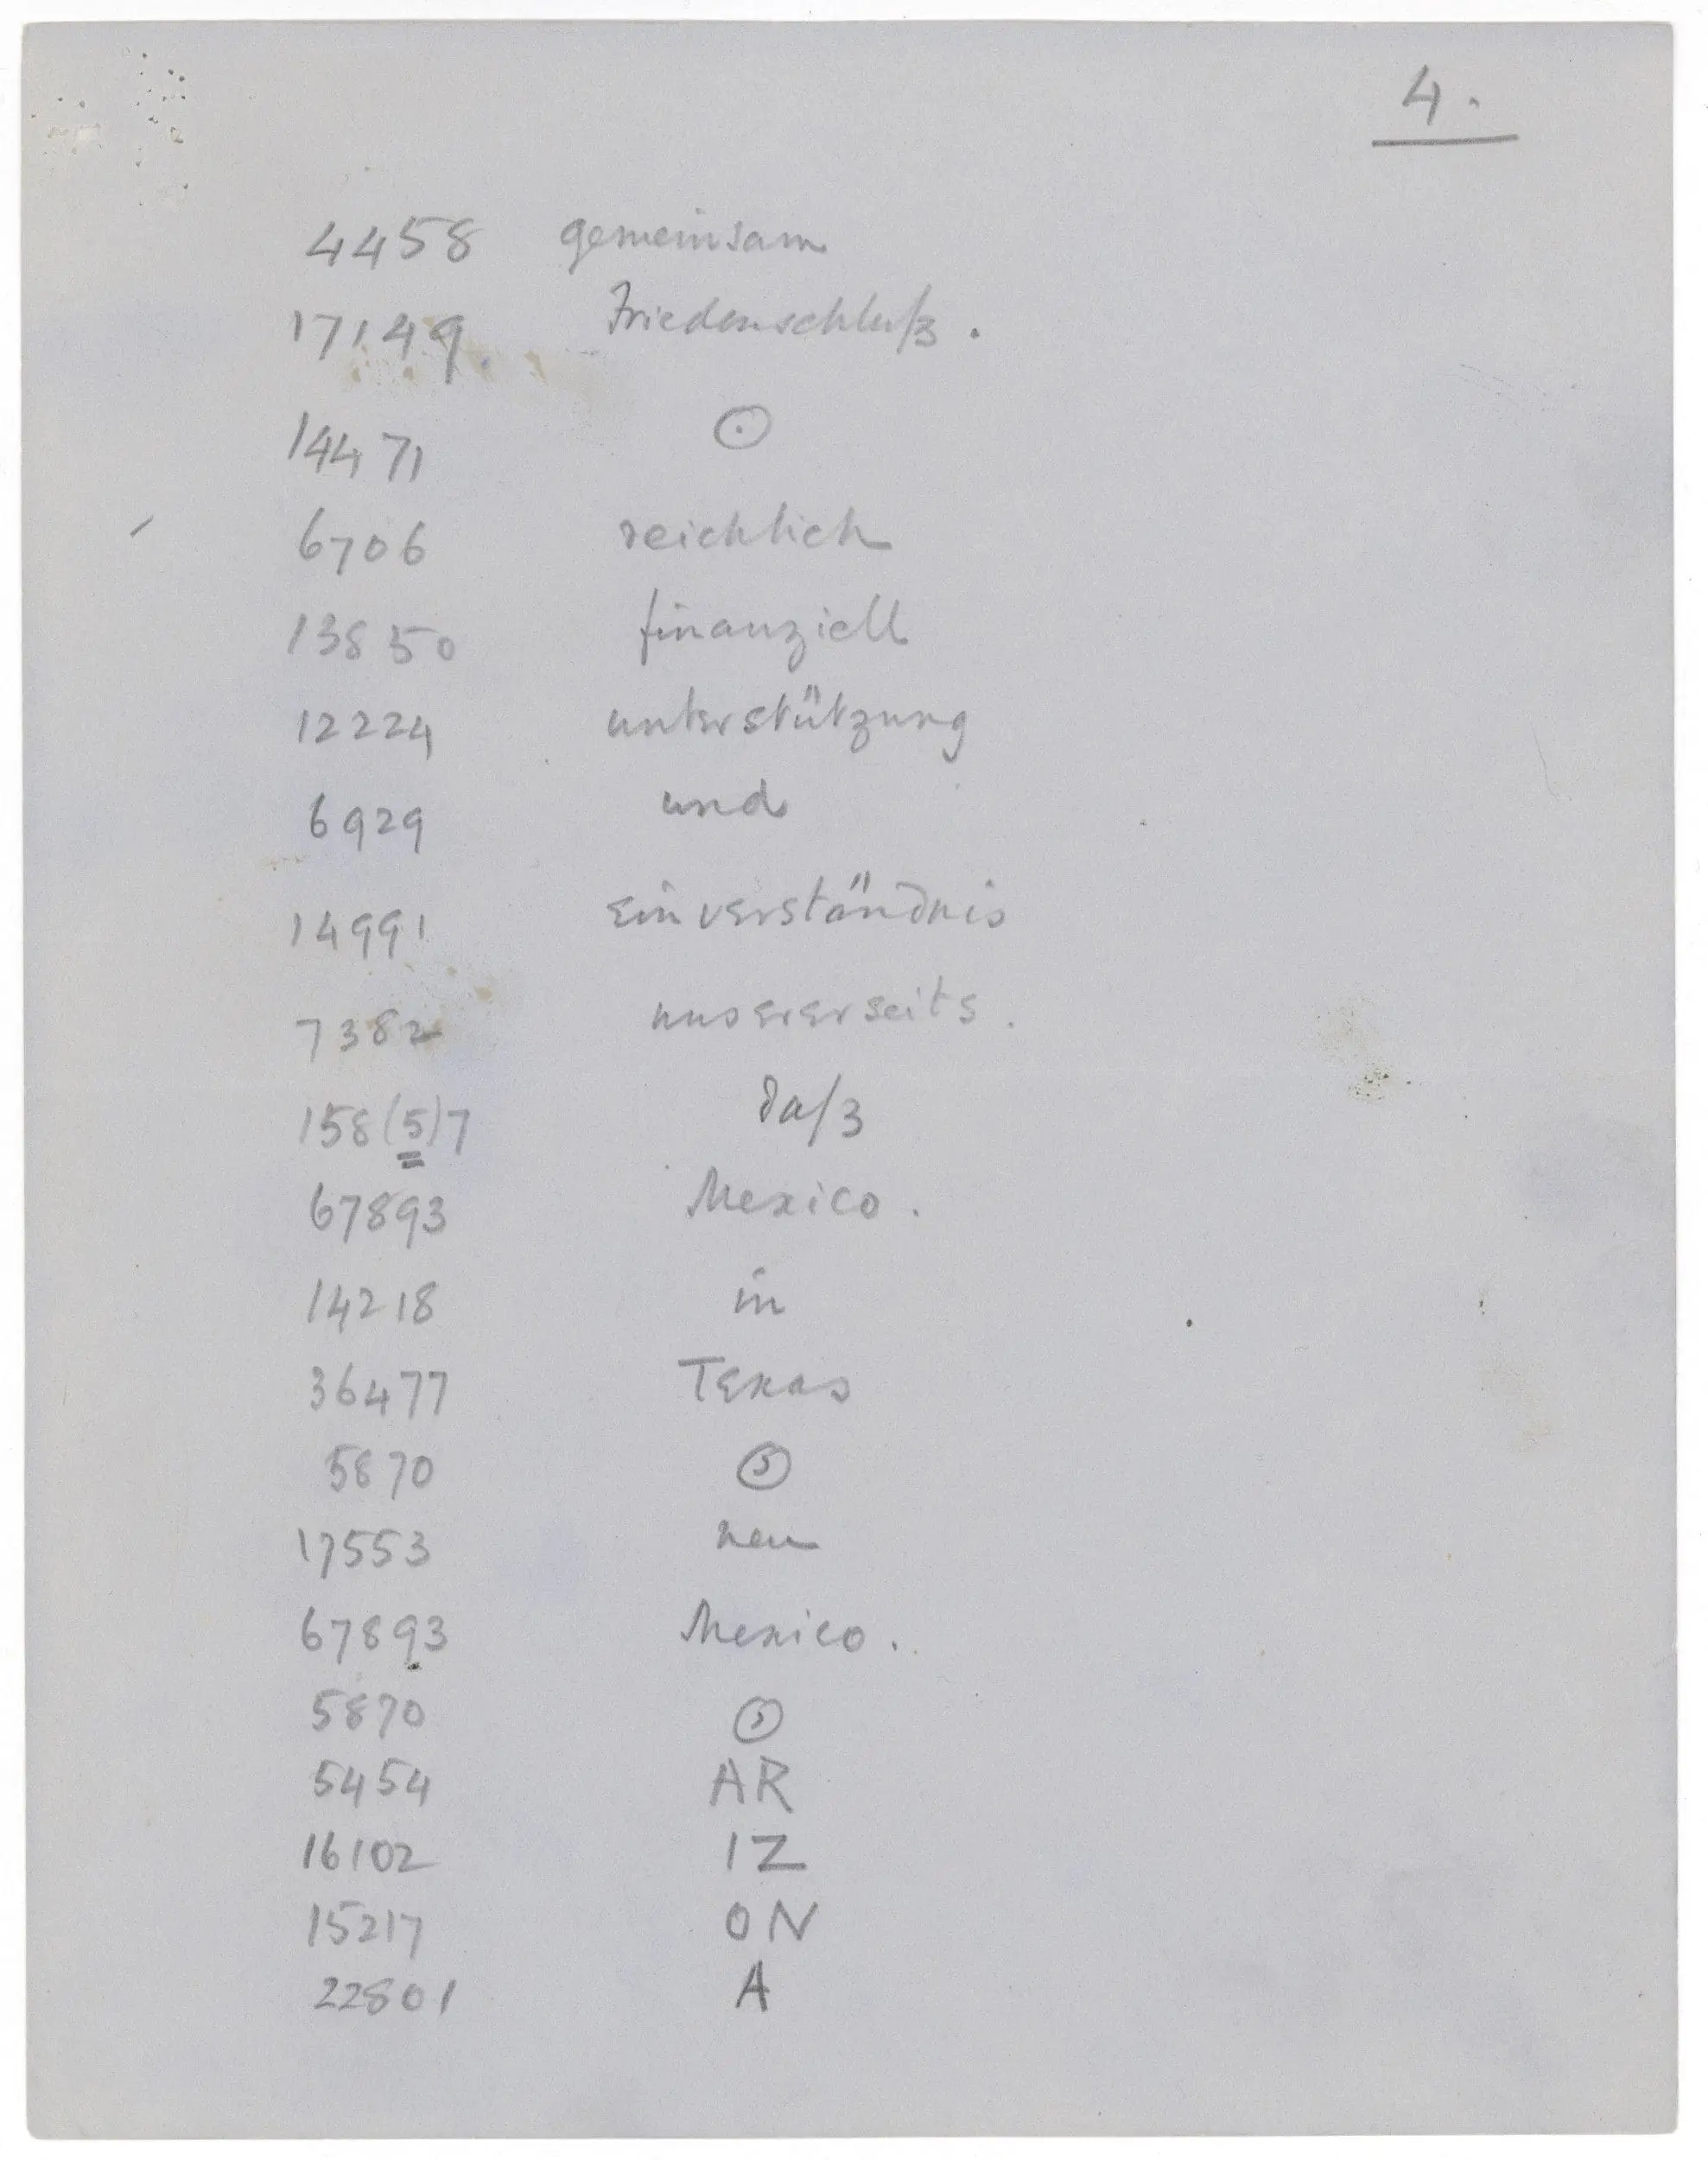 4.
4458 gemeinsam
17149. Friedenschluß.
14471 ⊙
6706 reichlich
13850 finanziell
12224 unterstützung
6929 und
14991 einverständnis
7382 unsererseits.
158(5)7 daß
67893 Mexico.
14218 in
36477 Texas
5870 (,)
17553 neu
67893 Mexico.
5870 (,)
5454 AR
16102 IZ
15217 ON
22801 A